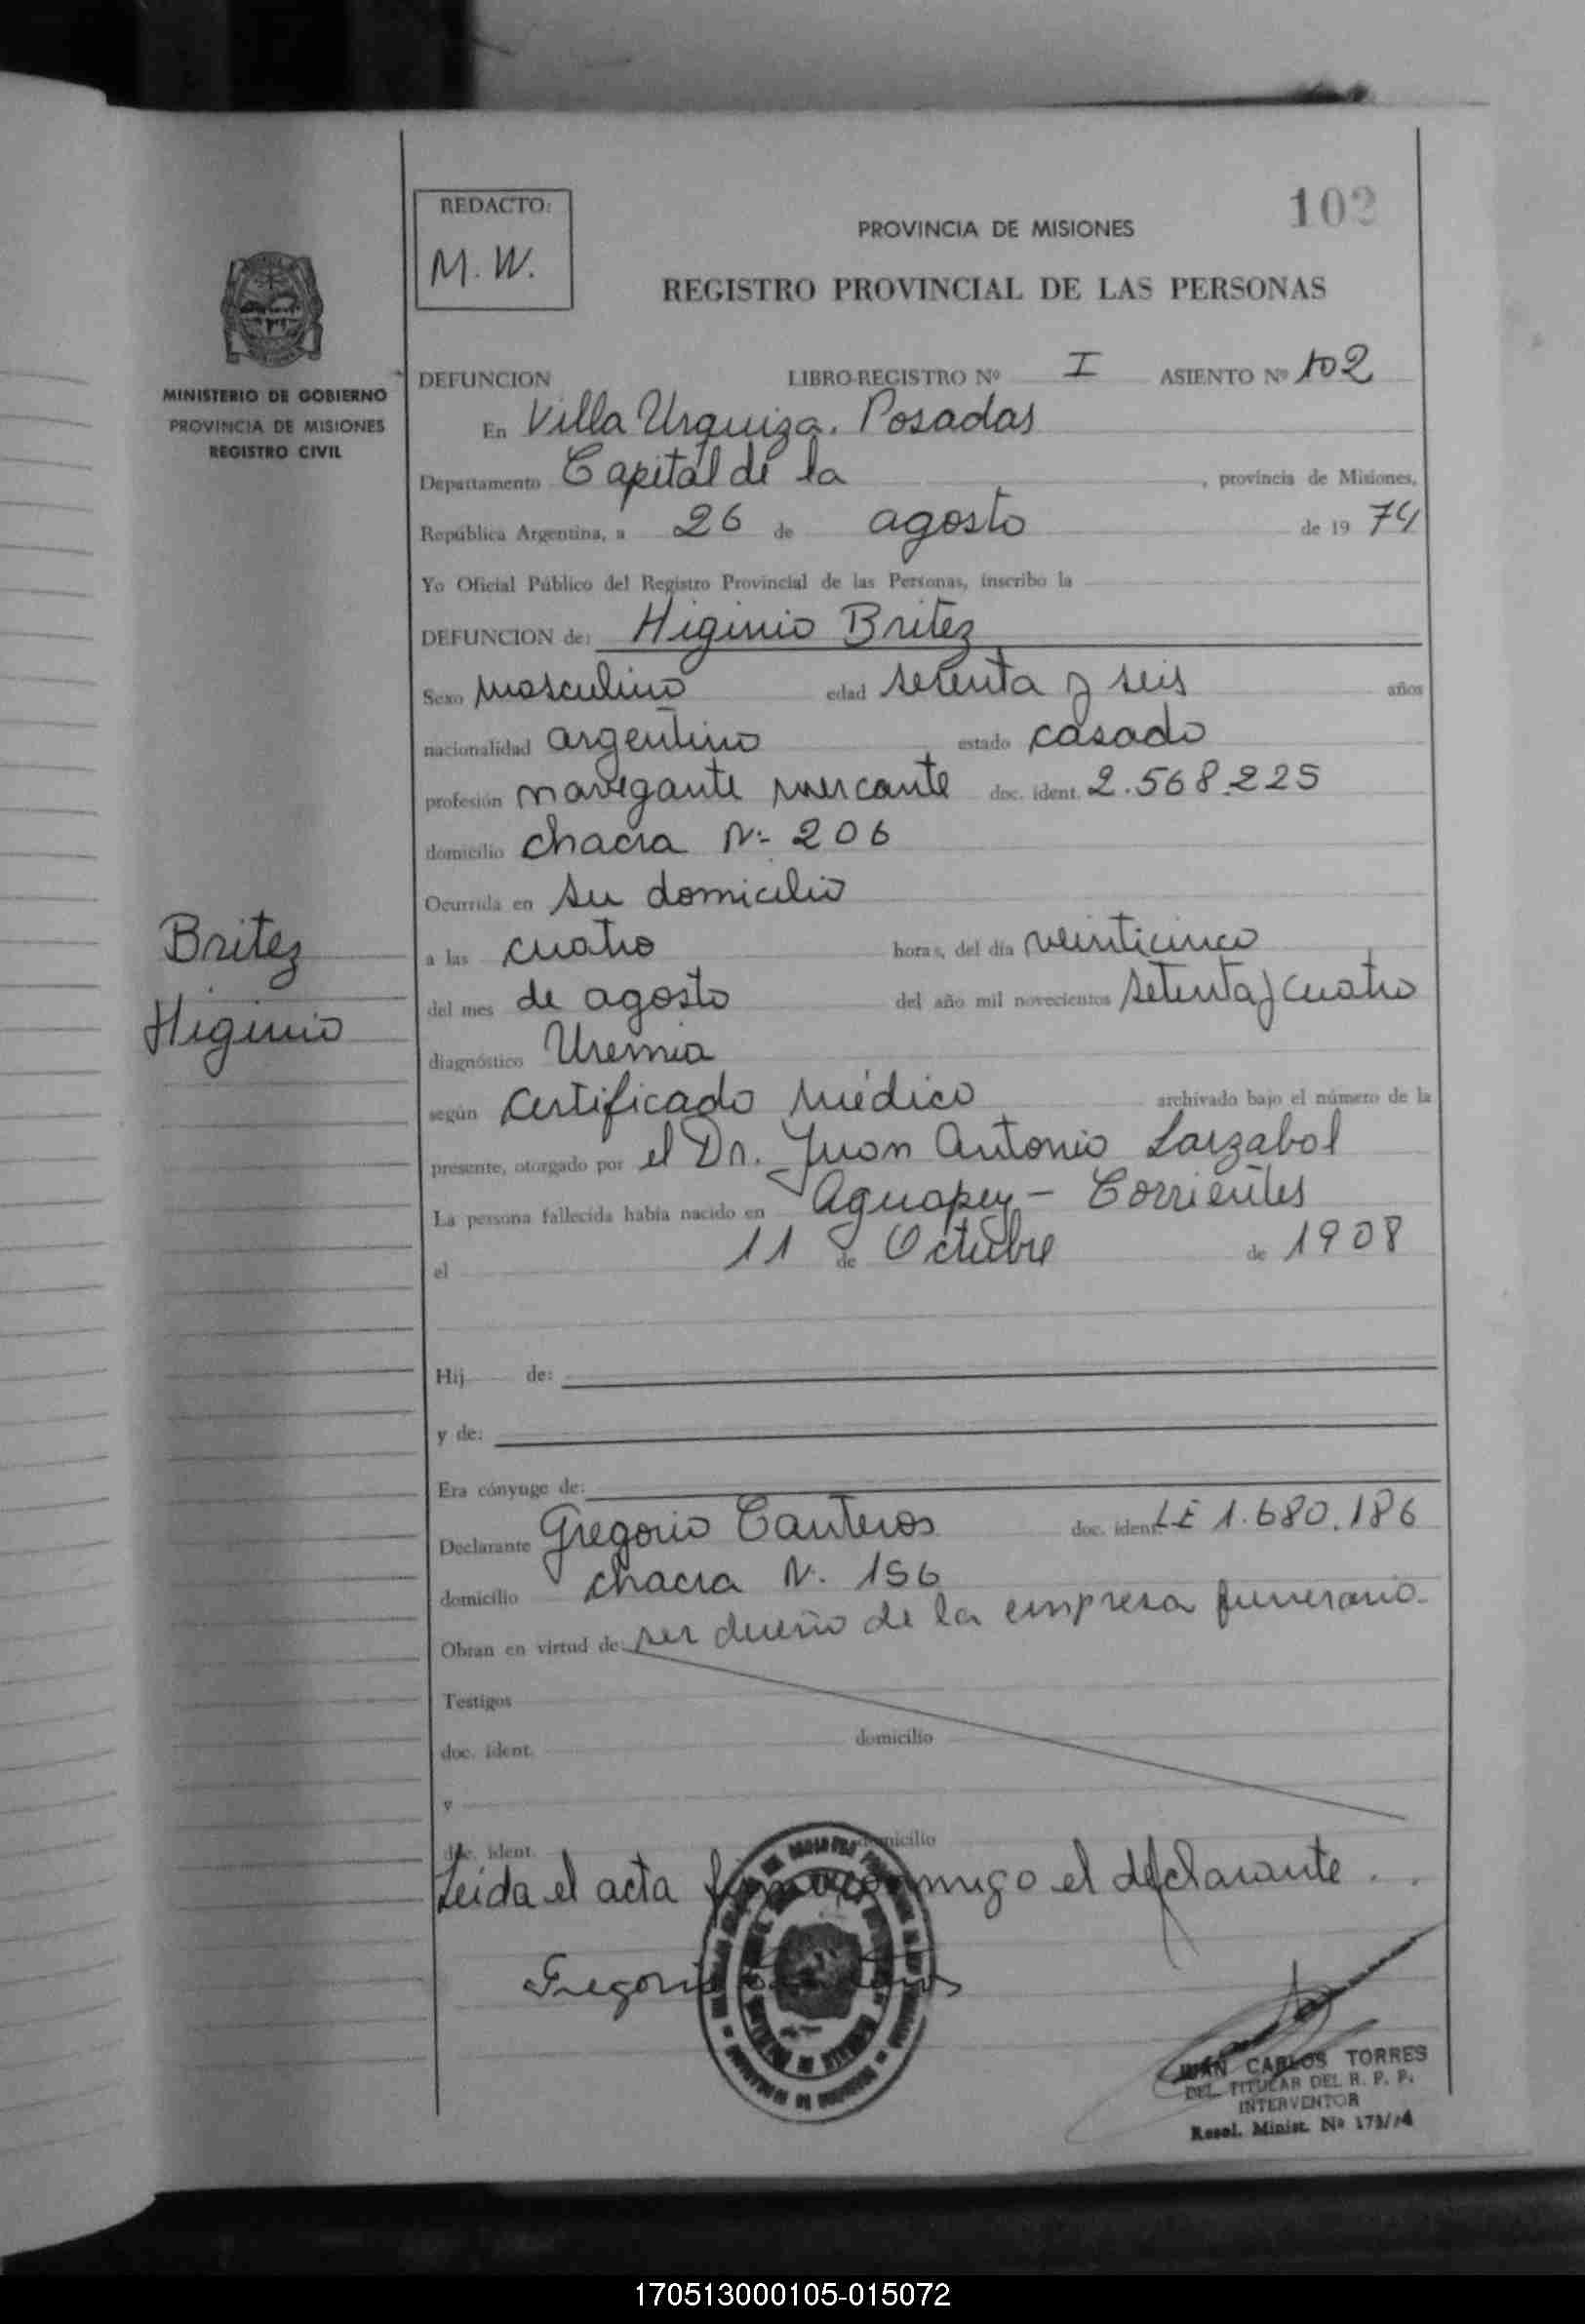 REDACTO:
M. W.
102
PROVINCIA DE MISIONES
REGISTRO PROVINCIAL DE LAS PERSONAS
MINISTERIO DE GOBIERNO
PROVINCIA DE MISIONES
REGISTRO CIVIL
DEFUNCION LIBRO-REGISTRO Nº I ASIENTO Nº 102
En Villa Urquiza. Posadas
Departamento Capital de la , provincia de Misiones,
República Argentina, a 26 de agosto de 19 74
Yo Oficial Público del Registro Provincial de las Personas, inscribo la
DEFUNCION de: Higinio Britez
Sexo masculino edad setenta y seis años
nacionalidad argentino estado casado
profesión navegante mercante doc. ident. 2.568.225
domicilio chacra Nº 206
Ocurrida en su domicilio
Britez
Higinio
a las cuatro horas, del día veinticinco
del mes de agosto del año mil novecientos setenta y cuatro
diagnóstico Uremia
según certificado médico archivado bajo el número de la
presente, otorgado por el Dr. Juan Antonio Larzabal
La persona fallecida había nacido en Aguapey - Corrientes
el 11 de Octubre de 1908
Hij de:
y de:
Era cónyuge de:
Declarante Gregorio Canteros doc. ident. LE 1.680.186
domicilio chacra N. 156
Obran en virtud de: ser dueño de la empresa funeraria.
Testigos
doc. ident. domicilio
y
doc. ident. domicilio
Leida el acta firma conmigo el declarante.
Gregorio Canteros
JUAN CARLOS TORRES
DEL. TITULAR DEL R. P. P.
INTERVENTOR
Resol. Minist. Nº 173/74
170513000105-015072